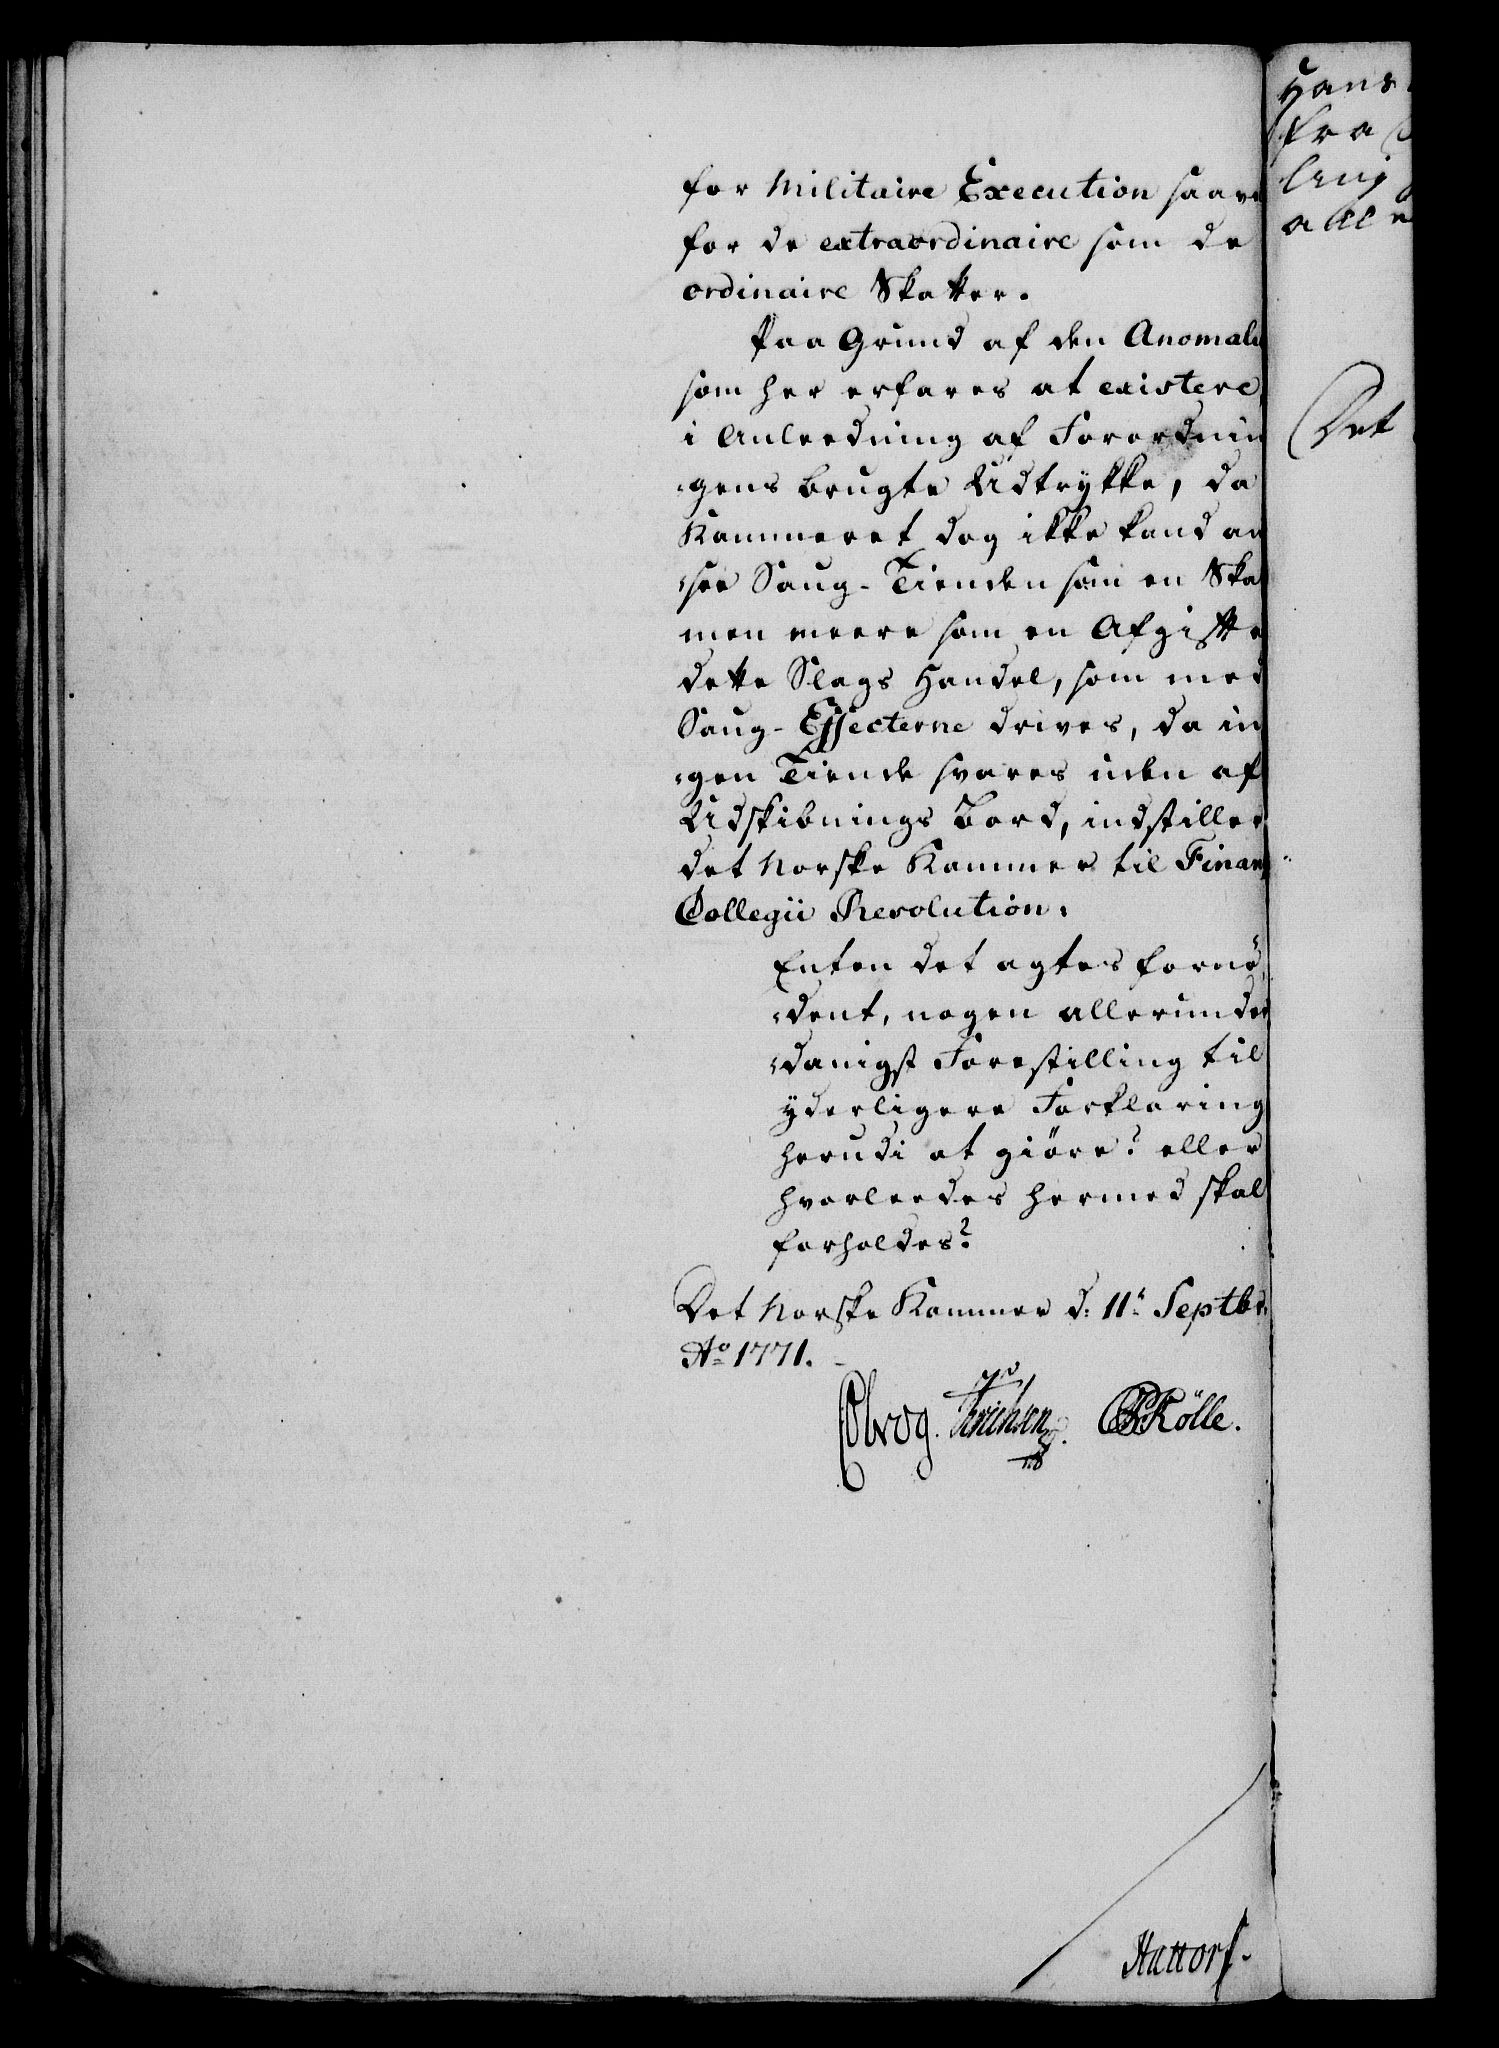 for Militaire Execution saave
for de extraordinaire som de
ordinaire Skatter.
Paa Grund af den Anomalie
som her erfares at existere,
i Anleedning af Forordnin
gens brugte Udtrykke, da
Kammeret dog ikke kand an
see Saug-Tienden som en Ska
men meere som en Afgift
dette Slags Handel, som med
Saug-Effecterne drives, da in
gen Tiende svares uden af
Udskibnings Bord, indstiller
det Norske Kammer til Finan
Collegii Resolution.
Enten det agtes fornö
dent, nogen allerunder
danigst Forestilling til
yderligere Forklaring
herudi at giöre? eller
hvorleedes hermed skal
forholdes?
Det Norske Kammer d: 11t Septbr.
Ao 1771.
Erichsen. Rölle.
Hattorf.
Hans
fra
ling
alle
Det